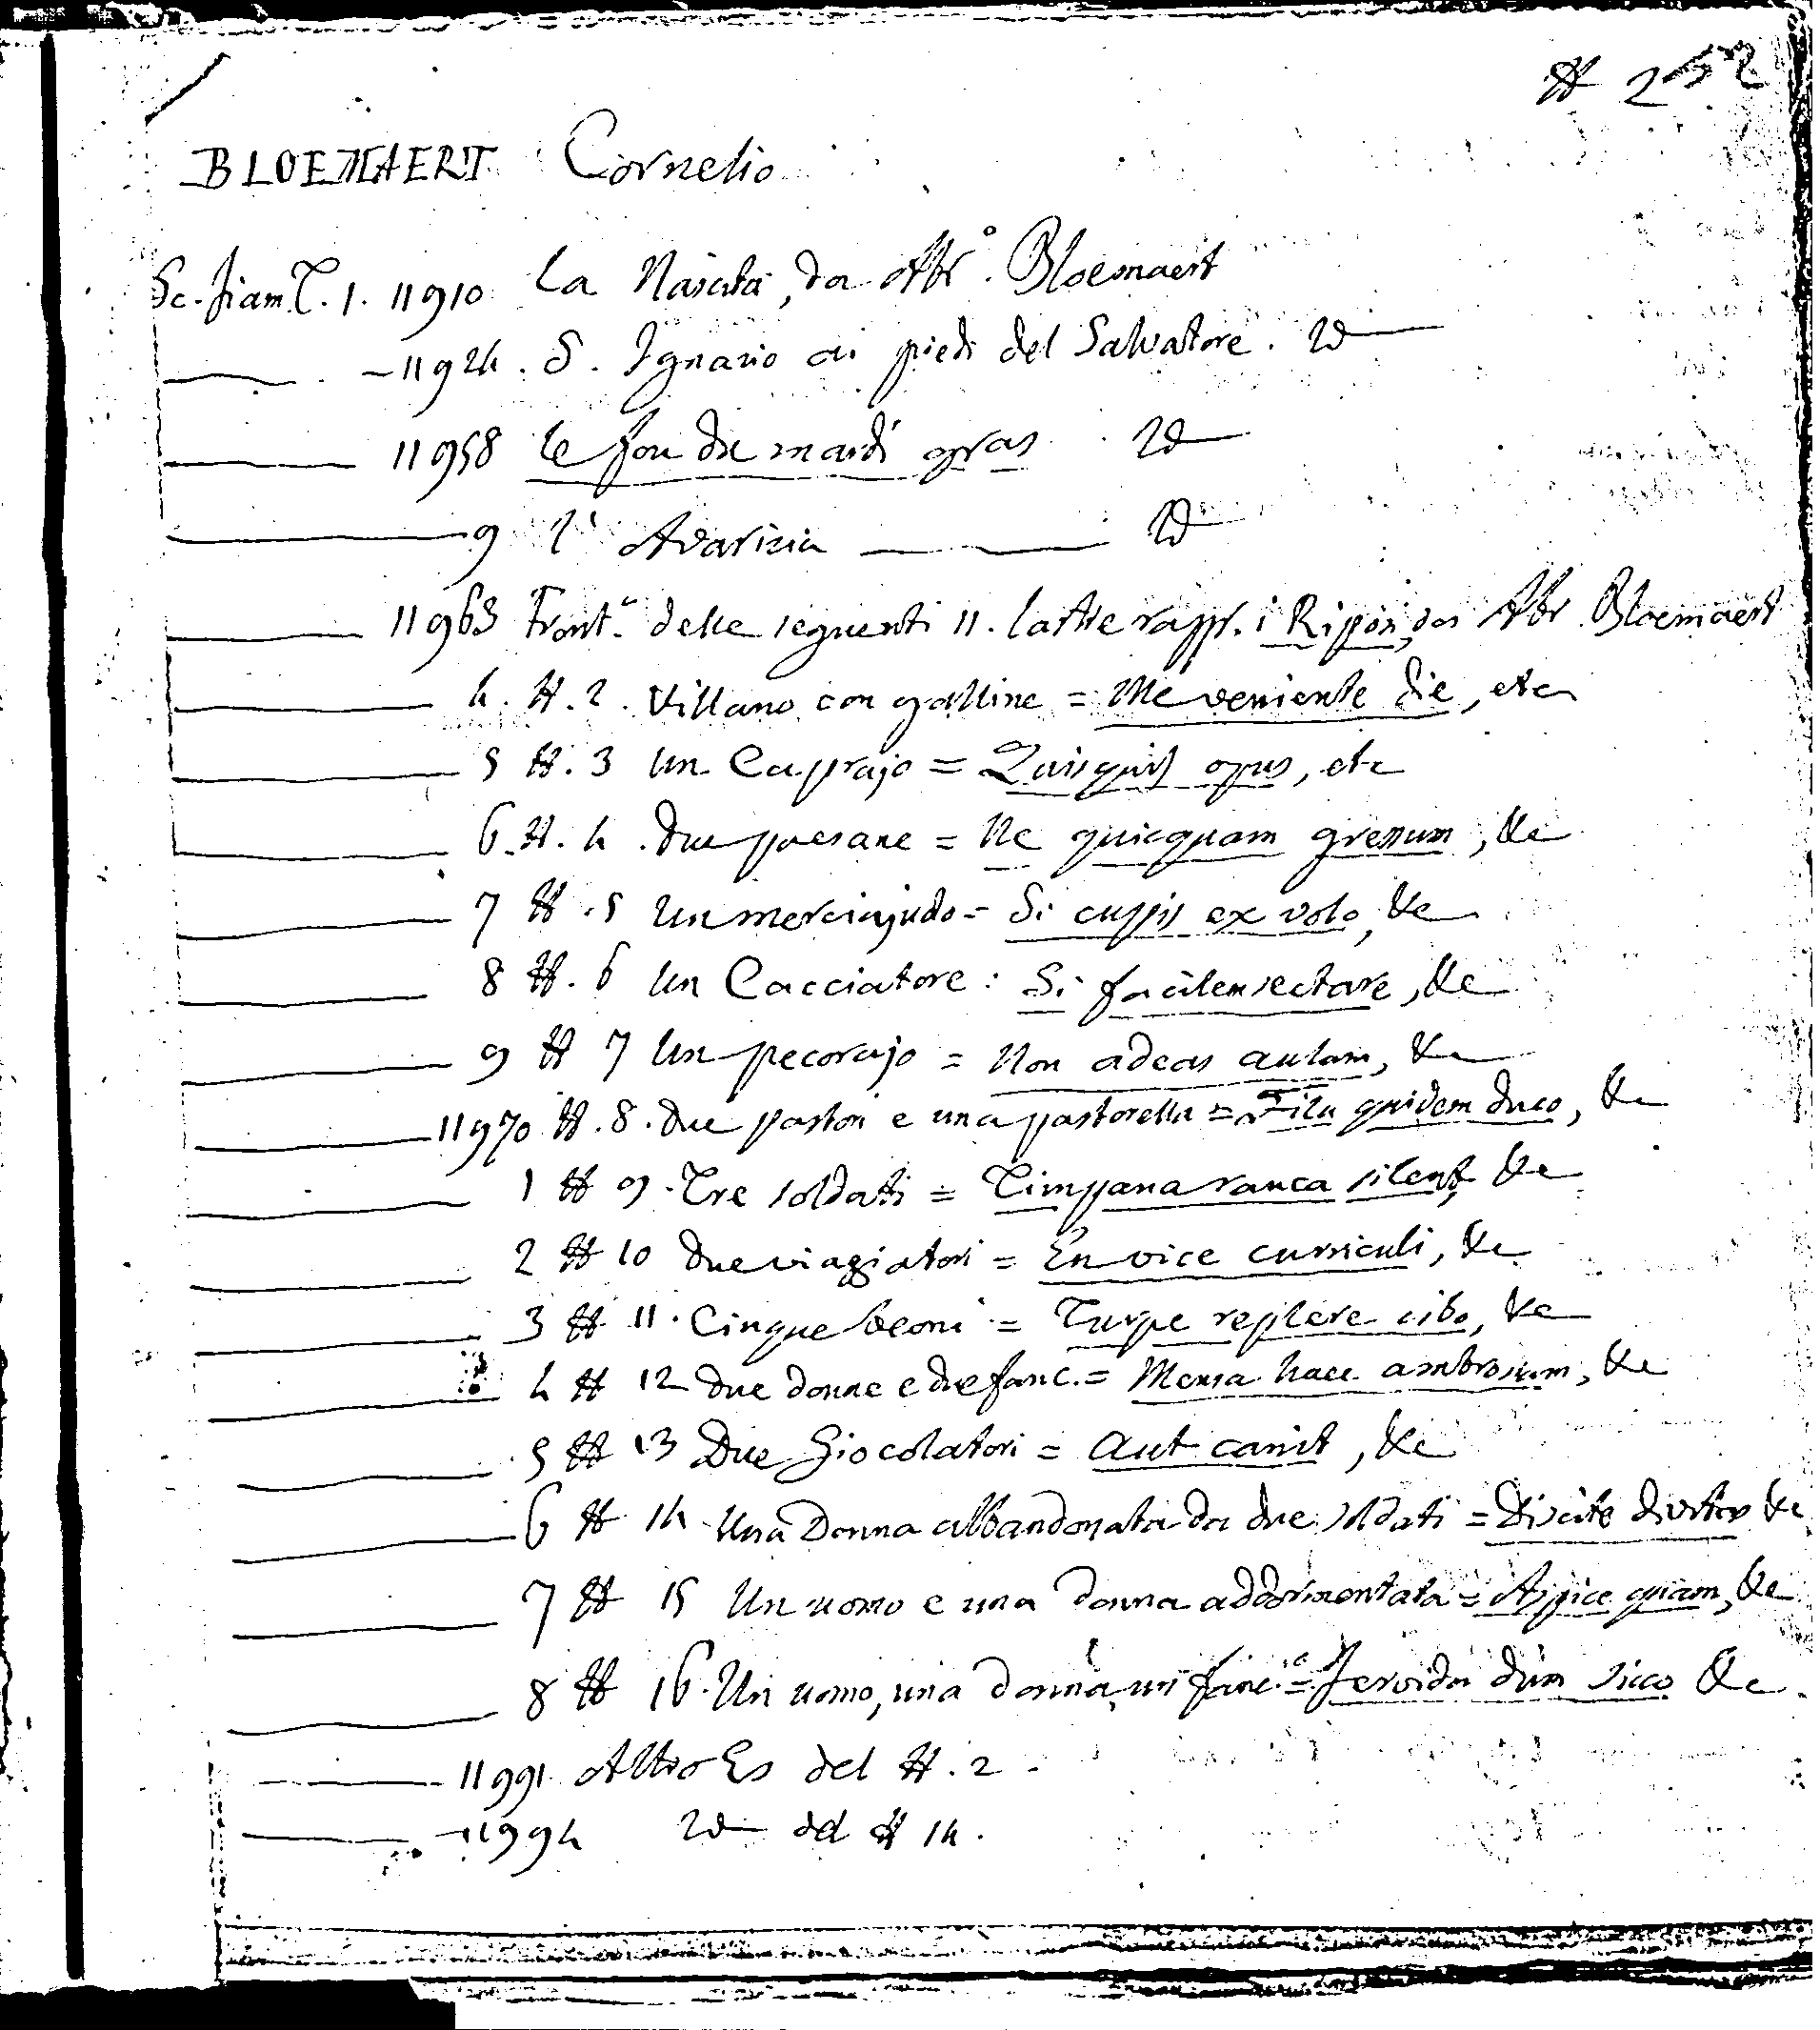 # 252
BLOEMAERT Cornelio
Sc. fiam. T. 1. 11910 La Nascita, da Abr.° Bloemaert
11924. S. Ignazio ai piedi del Salvatore. Id
11958 le fou du mardi gras Id
9 l'Avarizia Id
11963 Front.e delle seguenti 11. lastre rappr. i Riposi, da Abr Bloemaert
4. #. 2. Villano con galline = Me veniente die, etc
5 #. 3 Un Caprajo = Quisquis opus, etc
6 #. 4. due paesane = Ne quicquam gressum, &c
7 #. 5 Un merciajudo = Si cupis ex voto, &c
8 #. 6 Un Cacciatore: Si facilem sectare, &c
9 # 7 Un pecorajo = Non adeas aulam, &c
11970 #. 8. due pastori e una pastorella = Fila quidem duco, &c
1 # 9. Tre soldati = Timpana rauca silent, &c
2 # 10 due viagiatori = En vice curriculi, &c
3 # 11. Cinque beoni = Turpe replere cibo, &c
4 # 12 due donne e due fanc. = Mensa haec ambrosiam, &c
5 # 13 Due Giocolatori = Aut canit, &c
6 # 14 Una Donna abbandonata da due soldati = Discite &c
7 # 15 Un uomo e una donna addormentata = Aspice quam, &c
8 # 16. Un uomo, una donna, un fanc.° = Fervida dum sicco &c
11991 Altro Es del #. 2
11994 Id del # 14.